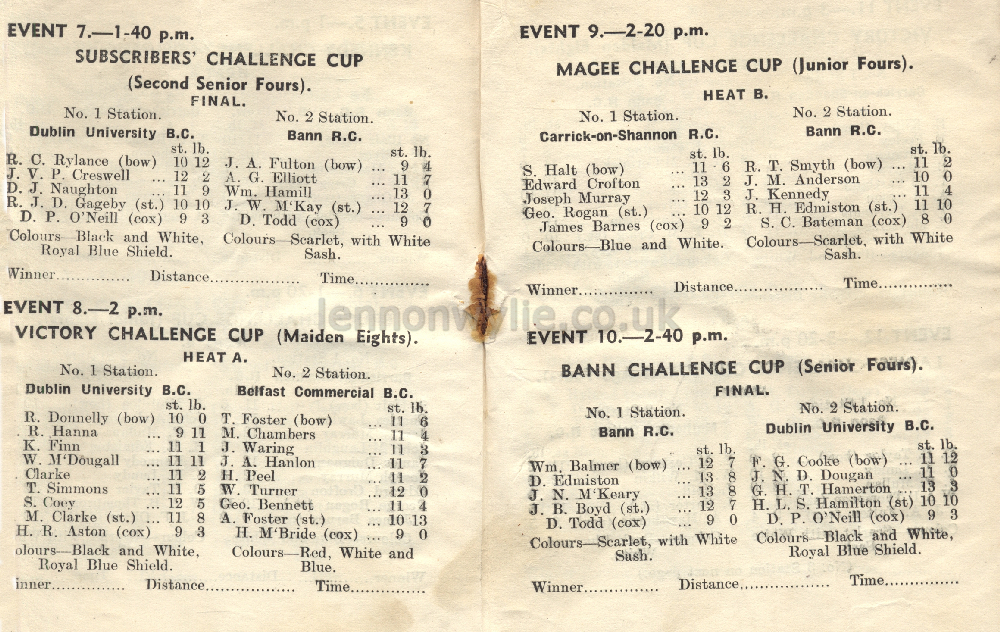 EVENT 7.—1-40 p.m.
SUBSCRIBERS' CHALLENGE CUP
(Second Senior Fours).
FINAL.
No. 1 Station. No. 2 Station.
Dublin University B.C. Bann R.C.
st. lb. st. lb.
R. C. Rylance (bow) 10 12 J. A. Fulton (bow) ... 9 4
J. V. P. Creswell ... 12 2 A. G. Elliott ... 11 7
D. J. Naughton ... 11 9 Wm. Hamill ... 13 0
R. J. D. Gageby (st.) 10 10 J. W. M'Kay (st.) ... 12 7
D. P. O'Neill (cox) 9 3 D. Todd (cox) ... 9 0
Colours—Black and White, Colours—Scarlet, with White
Royal Blue Shield. Sash.
Winner.............. Distance.................. Time..............
EVENT 8.—2 p.m.
VICTORY CHALLENGE CUP (Maiden Eights).
HEAT A.
No. 1 Station. No. 2 Station.
Dublin University B.C. Belfast Commercial B.C.
st. lb. st. lb.
R. Donnelly (bow) 10 0 T. Foster (bow) ... 11 6
R. Hanna ... 9 11 M. Chambers ... 11 4
K. Finn ... 11 1 J. Waring ... 11 3
W. M'Dougall ... 11 11 J. A. Hanlon ... 11 7
Clarke ... 11 2 H. Peel ... 11 2
T. Simmons ... 11 5 W. Turner ... 12 0
S. Coey ... 12 5 Geo. Bennett ... 11 4
M. Clarke (st.) ... 11 8 A. Foster (st.) ... 10 13
H. R. Aston (cox) 9 3 H. M'Bride (cox) ... 9 0
olours—Black and White, Colours—Red, White and
Royal Blue Shield. Blue.
inner.............. Distance.................. Time..............
EVENT 9.—2-20 p.m.
MAGEE CHALLENGE CUP (Junior Fours).
HEAT B.
No. 1 Station. No. 2 Station.
Carrick-on-Shannon R.C. Bann R.C.
st. lb. st. lb.
S. Halt (bow) ... 11 6 R. T. Smyth (bow) ... 11 2
Edward Crofton ... 13 2 J. M. Anderson ... 10 0
Joseph Murray ... 12 3 J. Kennedy ... 11 4
Geo. Rogan (st.) ... 10 12 R. H. Edmiston (st.) 11 10
James Barnes (cox) 9 2 S. C. Bateman (cox) 8 0
Colours—Blue and White. Colours—Scarlet, with White
Sash.
Winner.............. Distance.................. Time..............
EVENT 10.—2-40 p.m.
BANN CHALLENGE CUP (Senior Fours).
FINAL.
No. 1 Station. No. 2 Station.
Bann R.C. Dublin University B.C.
st. lb. st. lb.
Wm. Balmer (bow) ... 12 7 F. G. Cooke (bow) ... 11 12
D. Edmiston ... 13 8 J. N. D. Dougan ... 11 0
J. N. M'Keary ... 13 8 G. H. T. Hamerton ... 13 3
J. B. Boyd (st.) ... 12 7 H. L. S. Hamilton (st) 10 10
D. Todd (cox) ... 9 0 D. P. O'Neill (cox) 9 3
Colours—Scarlet, with White Colours—Black and White,
Sash. Royal Blue Shield.
Winner.............. Distance.................. Time..............
lennonwylie.co.uk